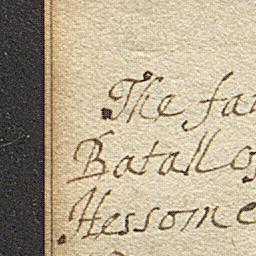 The fa
Batall of
Hessome